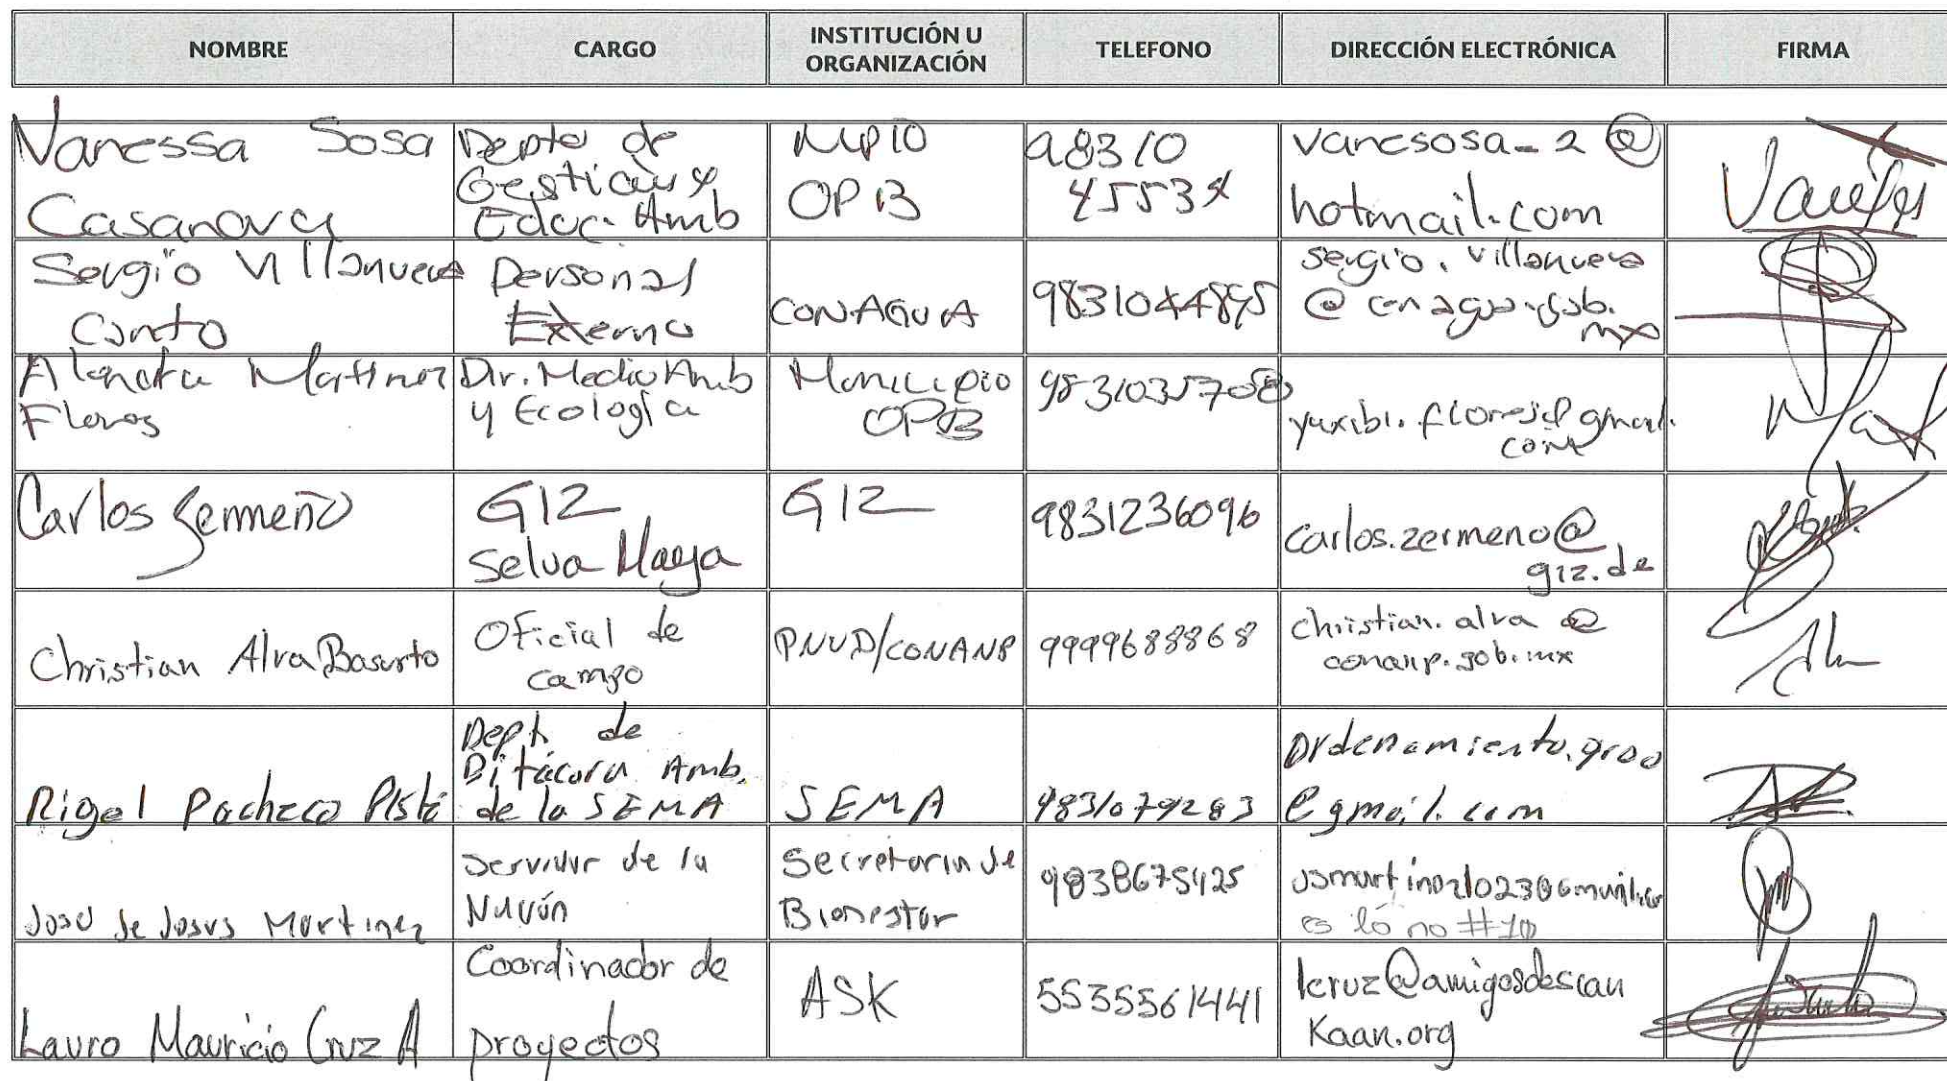 NOMBRE
CARGO
INSTITUCIÓN U
ORGANIZACIÓN
TELEFONO
DIRECCIÓN ELECTRÓNICA
FIRMA
Vanessa Sosa
Casanova
Depto de
Gestión y
Educ. Amb
MPIO
OPB
98310
45534
vanesosa_2@
hotmail.com
Sergio Villanueva
Canto
Personal
Externo
CONAGUA
9831044895
sergio.villanueva
@conagua.gob.
mx
Martinez
Flores
Dir. Medio Amb
y Ecología
Municipio
OPB
9831035708
yuxibi.flores@gmail.
com
Carlos Zermeño
GIZ
Selva Maya
GIZ
9831236096
carlos.zermeno@
giz.de
Christian Alva Basurto
Oficial de
campo
PNUD/CONANP
9999688868
christian.alva@
conanp.gob.mx
Rigel Pacheco Pisté
Dept. de
Bitácora Amb.
de la SEMA
SEMA
9831079283
Ordenamiento.qroo
@gmail.com
José de Jesus Martinez
Servidor de la
Nación
Secretaria de
Bienestar
9838675425
es ló no #10
Lauro Mauricio Cruz A
Coordinador de
proyectos
ASK
5535561441
lcruz@amigosdesian
Kaan.org